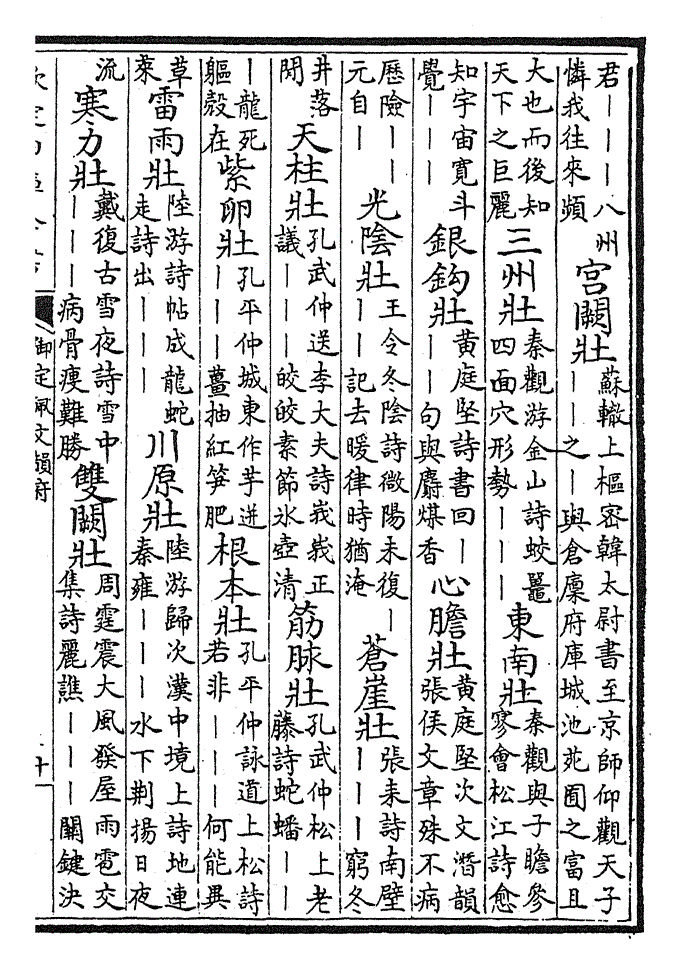 君｜｜｜八州憐我往來頻 宮闕壯 蘇轍上樞密韓太尉書至京師仰觀天子｜｜之｜與倉廩府庫城池苑囿之富且
大也而後知天下之巨麗 三州壯 秦觀游金山詩蛟鼉四面穴形勢｜｜｜ 東南壯 秦觀與子瞻參寥會松江詩愈
知宇宙寬斗覺｜｜｜ 銀鈎壯 黃庭堅詩書回｜｜｜句與麝煤香 心膽壯 黃庭堅次文潛韻張侯文章殊不病
歷險｜｜元自｜ 光陰壯 王令冬陰詩微陽未復｜｜｜記去暖律時猶淹 蒼崖壯 張耒詩南壁｜｜｜窮冬
井落閒 天柱壯 孔武仲送李大夫詩峩峩正議｜｜｜皎皎素節氷壺清 筋脉壯 孔武仲松上老藤詩蛇蟠｜｜
｜龍死軀殼在 紫卵壯 孔平仲城東作芋迸｜｜｜薑抽紅笋肥 根本壯 孔平仲詠道上松詩若非｜｜｜何能異
草萊 雷雨壯 陸游詩帖成龍蛇走詩出｜｜｜ 川原壯 陸游歸次漢中境上詩地連秦雍｜｜｜水下荆揚日夜
流 寒力壯 戴復古雪夜詩雪中｜｜｜病骨瘦難勝 雙闕壯 周霆震大風發屋雨雹交集詩麗譙｜｜｜關鍵決
御定佩文韻府